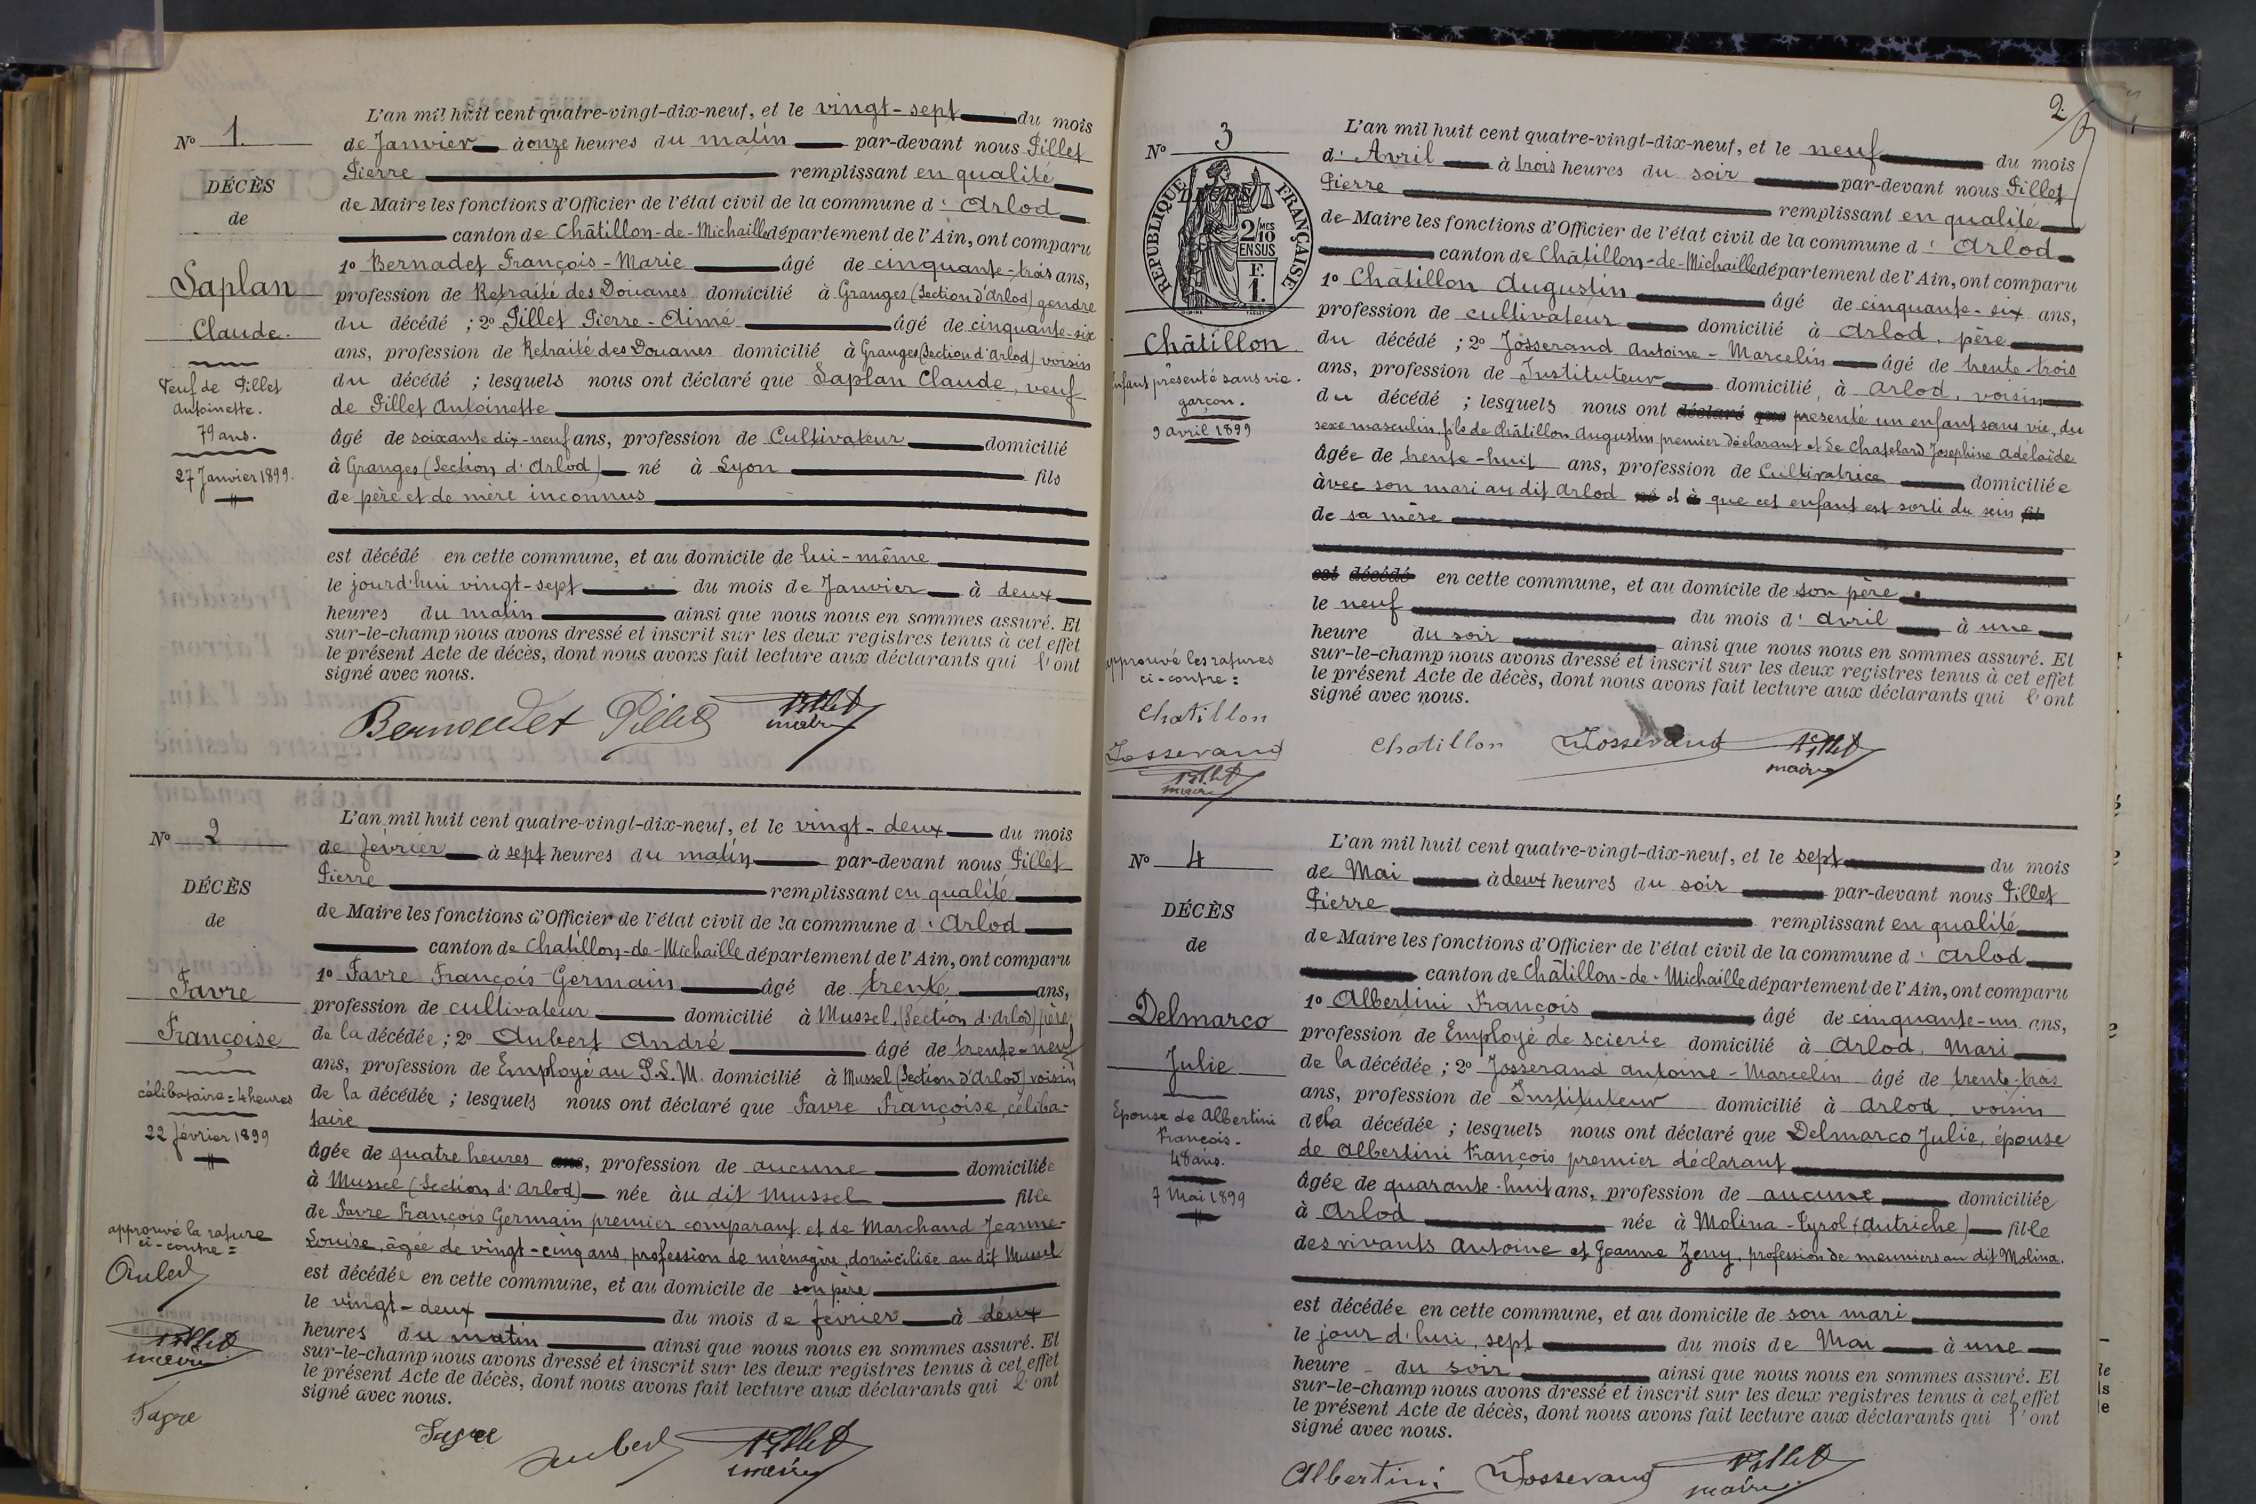 N° 1.
DÉCÈS
de
Saplan
Claude.
Veuf de Pillet
Antoinette.
79 ans.
27 Janvier 1899.
L'an mil huit cent quatre-vingt-dix-neuf, et le vingt-sept du mois
de Janvier à onze heures du matin par-devant nous Pillet
Pierre remplissant en qualité
de Maire les fonctions d'Officier de l'état civil de la commune d' Arlod
canton de Châtillon-de-Michaille département de l'Ain, ont comparu
1° Bernadet François-Marie âgé de cinquante-trois ans,
profession de Retraité des Douanes domicilié à Granges (Section d'Arlod) gendre
du décédé ; 2° Pillet Pierre-Aimé âgé de cinquante-six
ans, profession de Retraité des Douanes domicilié à Granges (Section d'Arlod) voisin
du décédé ; lesquels nous ont déclaré que Saplan Claude, veuf
de Pillet Antoinette
âgé de soixante dix-neuf ans, profession de Cultivateur domicilié
à Granges (Section d'Arlod) né à Lyon fils
de père et de mère inconnus
est décédé en cette commune, et au domicile de lui-même
le jourd'hui vingt-sept du mois de Janvier à deux
heures du matin ainsi que nous nous en sommes assuré. Et
sur-le-champ nous avons dressé et inscrit sur les deux registres tenus à cet effet
le présent Acte de décès, dont nous avons fait lecture aux déclarants qui l'ont
signé avec nous.
Bernadet Pillet Pillet
maire
N° 2
DÉCÈS
de
Favre
Françoise
célibataire = 4 heures
22 février 1899
approuvé la rature
ci-contre =
Aubert
Pillet
maire
Favre
L'an mil huit cent quatre-vingt-dix-neuf, et le vingt-deux du mois
de février à sept heures du matin par-devant nous Pillet
Pierre remplissant en qualité
de Maire les fonctions d'Officier de l'état civil de la commune d' Arlod
canton de Chatillon-de-Michaille département de l'Ain, ont comparu
1° Favre François Germain âgé de trente ans,
profession de cultivateur domicilié à Mussel, (Section d'Arlod) père
de la décédée ; 2° Aubert André âgé de trente-neuf
ans, profession de Employé au P.L.M. domicilié à Mussel (Section d'Arlod) voisin
de la décédée ; lesquels nous ont déclaré que Favre Françoise, céliba-
taire
âgée de quatre heures ans, profession de aucune domiciliée
à Mussel (Section d'Arlod) née àu dit Mussel fille
de Favre François Germain premier comparant et de Marchand Jeanne-
Louise, âgée de vingt-cinq ans, profession de ménagère, domiciliée au dit Mussel
est décédée en cette commune, et au domicile de son père
le vingt-deux du mois de février à deux
heures du matin ainsi que nous nous en sommes assuré. Et
sur-le-champ nous avons dressé et inscrit sur les deux registres tenus à cet effet
le présent Acte de décès, dont nous avons fait lecture aux déclarants qui l'ont
signé avec nous.
Favre Aubert Pillet
maire
2.
N° 3
DÉCÈS
RÉPUBLIQUE FRANÇAISE
2 MES
10
EN SUS
F.
1.
Châtillon
Enfant présenté sans vie.
garçon.
9 avril 1899
approuvé les ratures
ci-contre =
Chatillon
Josserand
Pillet
maire
L'an mil huit cent quatre-vingt-dix-neuf, et le neuf du mois
d' Avril à trois heures du soir par-devant nous Pillet
Pierre remplissant en qualité
de Maire les fonctions d'Officier de l'état civil de la commune d' Arlod
canton de Châtillon-de-Michaille département de l'Ain, ont comparu
1° Châtillon Augustin âgé de cinquante-six ans,
profession de cultivateur domicilié à Arlod, père
du décédé ; 2° Josserand Antoine-Marcelin âgé de trente-trois
ans, profession de Instituteur domicilié, à Arlod, voisin
du décédé ; lesquels nous ont déclaré que présenté un enfant sans vie, du
sexe masculin, fils de Châtillon Augustin premier déclarant et de Chatelard Josephine Adélaïde
âgée de trente-huit ans, profession de Cultivatrice domiciliée
àvec son mari au dit Arlod né et à que cet enfant est sorti du sein fil
de sa mère
est décédé en cette commune, et au domicile de son père
le neuf du mois d' Avril à une
heure du soir ainsi que nous nous en sommes assuré. Et
sur-le-champ nous avons dressé et inscrit sur les deux registres tenus à cet effet
le présent Acte de décès, dont nous avons fait lecture aux déclarants qui l'ont
signé avec nous.
Chatillon Josserand Pillet
maire
N° 4
DÉCÈS
de
Delmarco
Julie
Epouse de Albertini
François.
48 ans.
7 Mai 1899
L'an mil huit cent quatre-vingt-dix-neuf, et le sept du mois
de Mai à deux heures du soir par-devant nous Pillet
Pierre remplissant en qualité
de Maire les fonctions d'Officier de l'état civil de la commune d' Arlod
canton de Châtillon-de-Michaille département de l'Ain, ont comparu
1° Albertini François âgé de cinquante-un ans,
profession de Employé de scierie domicilié à Arlod, Mari
de la décédée ; 2° Josserand Antoine-Marcelin âgé de trente-trois
ans, profession de Instituteur domicilié à Arlod, voisin
dela décédée ; lesquels nous ont déclaré que Delmarco Julie, épouse
de Albertini François premier déclarant
âgée de quarante-huit ans, profession de aucune domiciliée
à Arlod née à Molina-Tyrol (Autriche) fille
des vivants Antoine et Jeanne Zeny, profession de meuniers au dit Molina.
est décédée en cette commune, et au domicile de son mari
le jour d'hui, sept du mois de Mai à une
heure du soir ainsi que nous nous en sommes assuré. Et
sur-le-champ nous avons dressé et inscrit sur les deux registres tenus à cet effet
le présent Acte de décès, dont nous avons fait lecture aux déclarants qui l'ont
signé avec nous.
Albertini Josserand Pillet
maire